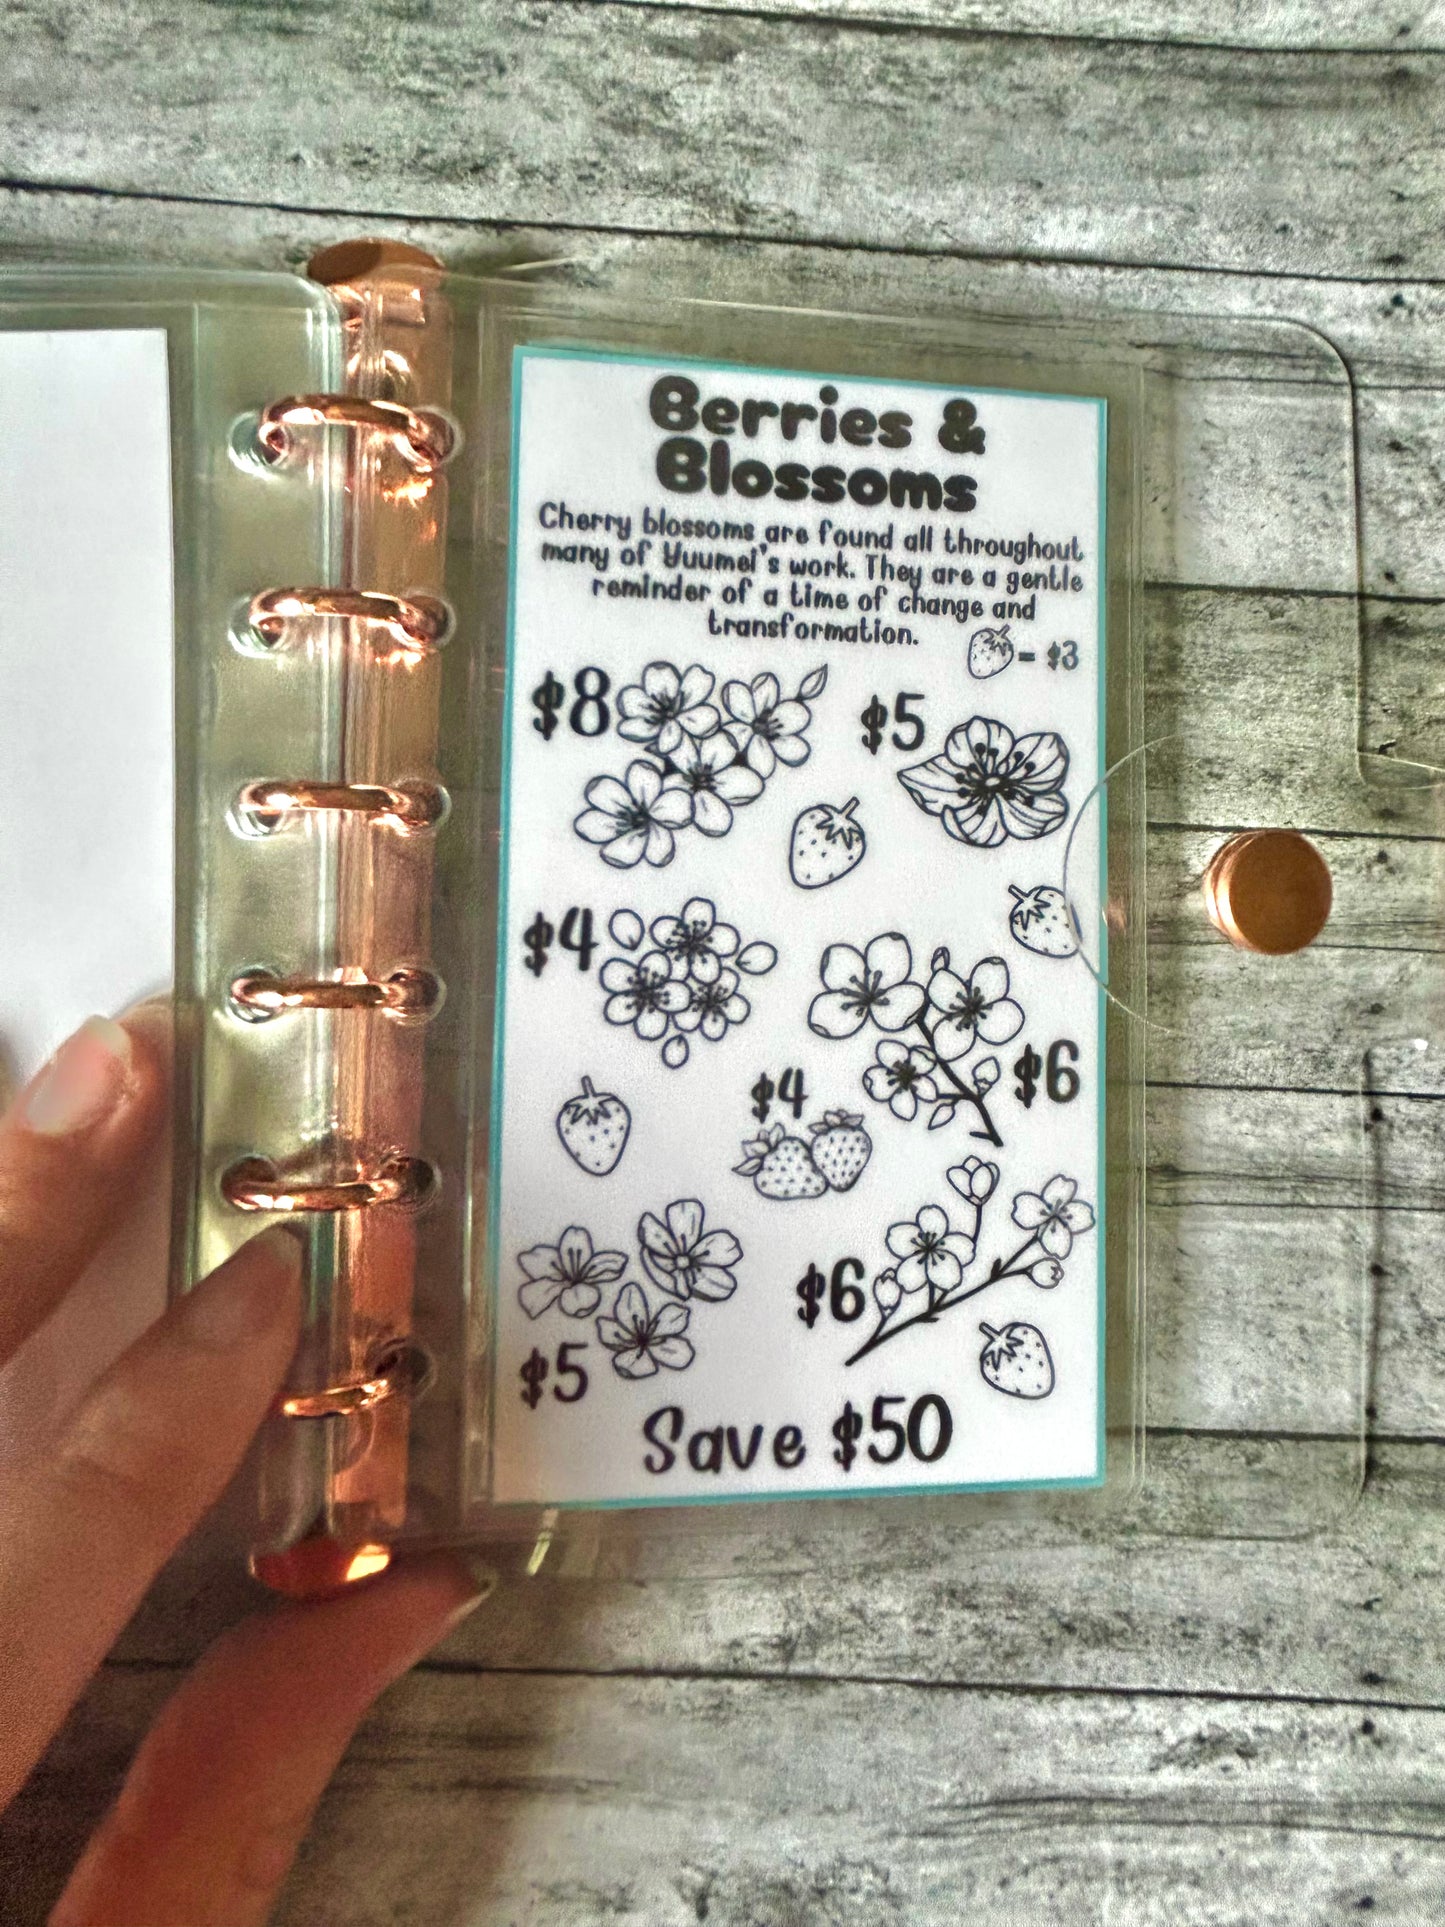 Berries &
Blossoms
Cherry blossoms are found all throughout
many of Yuumei's work. They are a gentle
reminder of a time of change and
transformation.
= $3
$8
$5
$4
$6
$4
$6
$5
Save $50